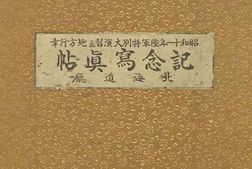 昭和十一年陸軍特別大演習並地方行幸
記念寫眞帖
北海道廳